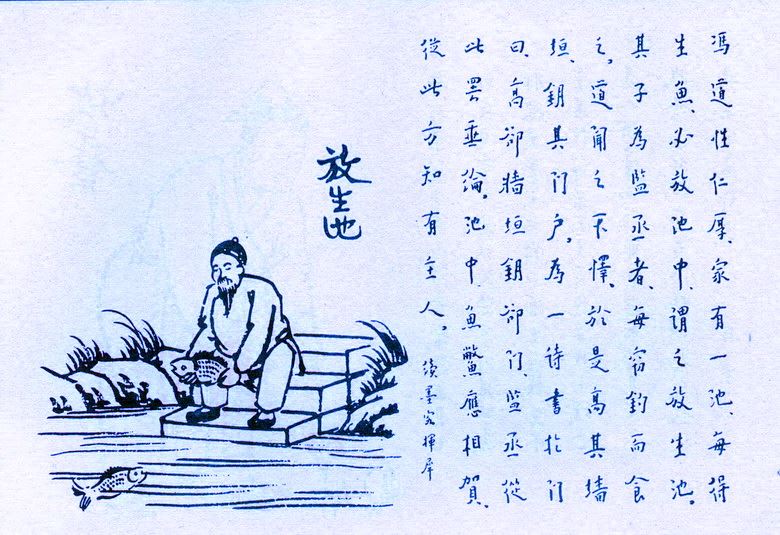 放生池
馮道性仁厚、家有一池、每得
生魚、必放池中、謂之放生池。
其子為監丞者、每窃釣而食
之。道聞之不懌、於是高其墙
垣、鈅其门户。為一诗書於门
曰、高却牆垣鈅却门、监丞從
此罢垂綸。池中魚鱉應相賀、
從此方知有主人。
續墨客揮犀